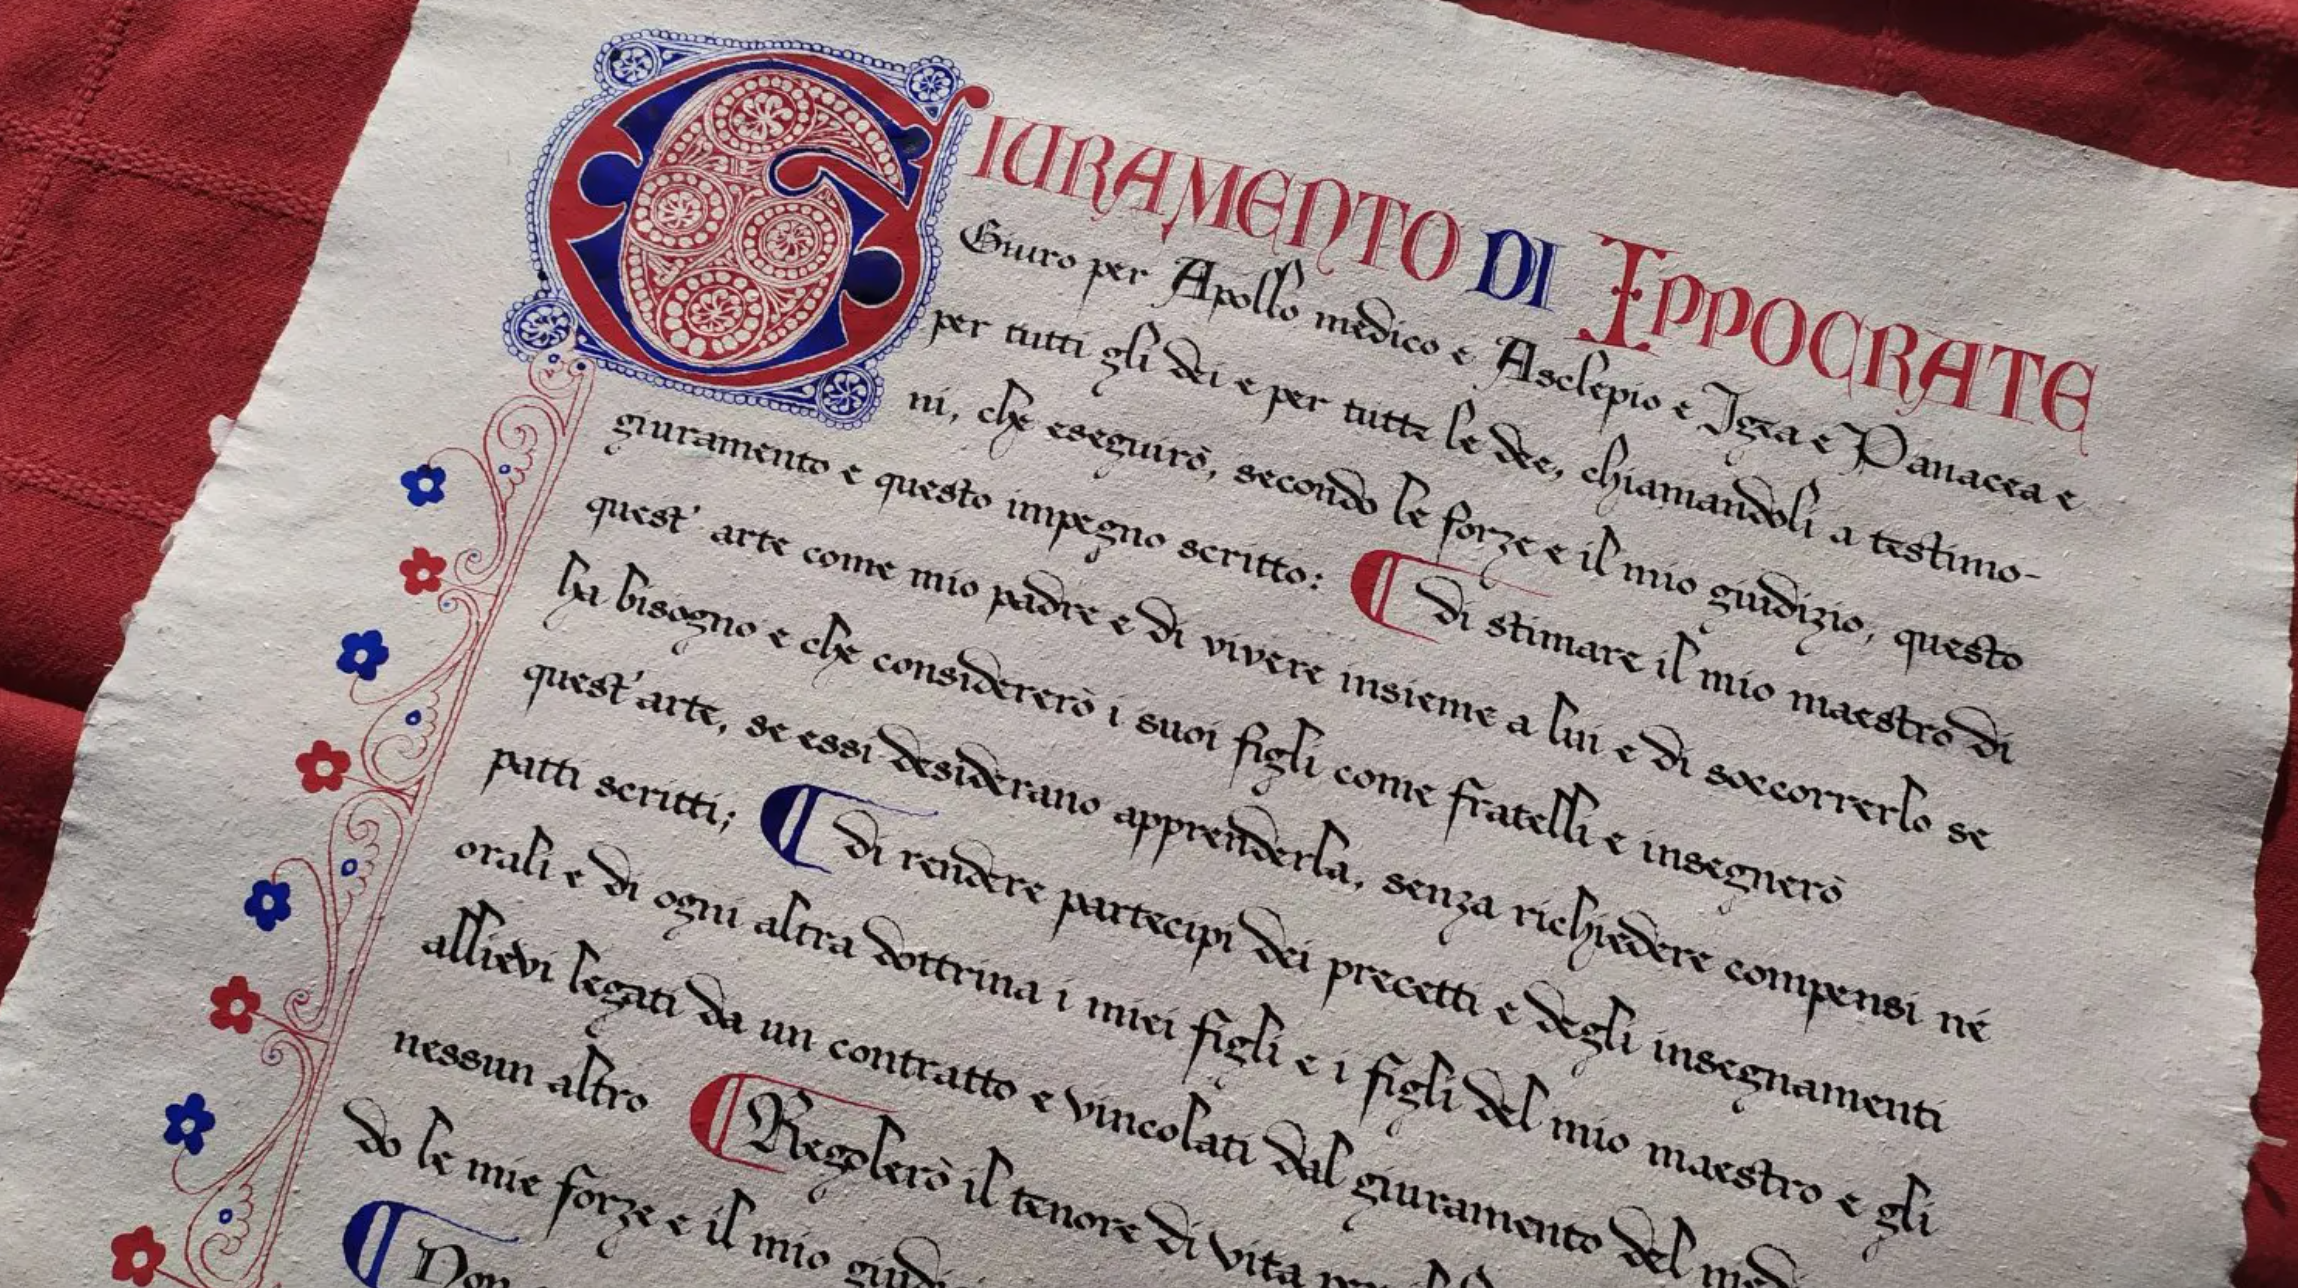 GIURAMENTO DI IPPOCRATE
Giuro per Apollo medico e Asclepio e Igea e Panacea e
per tutti gli dei e per tutte le dee, chiamandoli a testimo-
ni, che eseguirò, secondo le forze e il mio giudizio, questo
giuramento e questo impegno scritto: di stimare il mio maestro di
quest' arte come mio padre e di vivere insieme a lui e di soccorrerlo se
ha bisogno e che considererò i suoi figli come fratelli e insegnerò
quest'arte, se essi desiderano apprenderla, senza richiedere compensi né
patti scritti; di rendere partecipi dei precetti e degli insegnamenti
orali e di ogni altra dottrina i miei figli e i figli del mio maestro e gli
allievi legati da un contratto e vincolati dal giuramento del
nessun altro Regolerò il tenore di vita
do le mie forze e il mio
Non